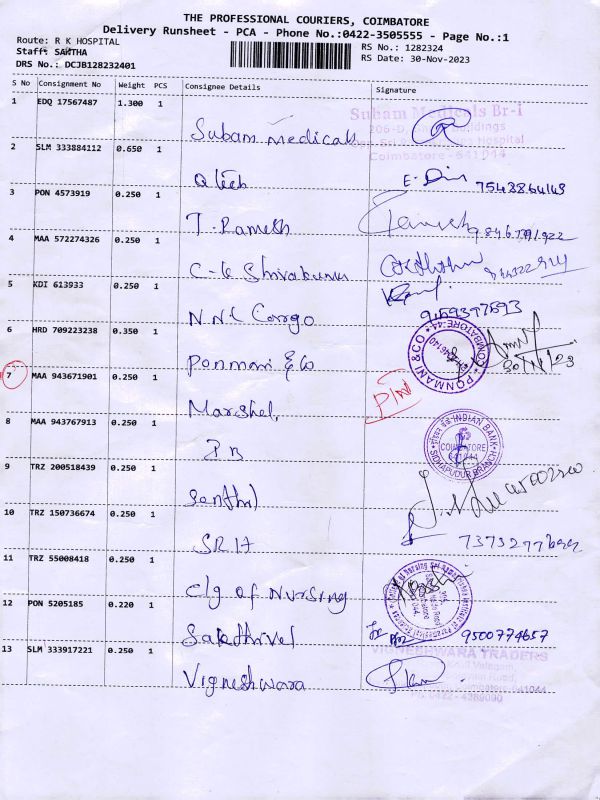 THE PROFESSIONAL COURIERS, COIMBATORE
Delivery Runsheet - PCA - Phone No.:0422-3505555 - Page No.:1
Route: R K HOSPITAL
RS No.: 1282324
Staff: SARTHA
RS Date: 30-Nov-2023
DRS No.: DCJB128232401
S No Consignment No Weight PCS Consignee Details Signature
1 EDQ 17567487 1.300 1 Subam Medicals
Subam Medicals Br-i
Coimbatore - 641 044
2 SLM 333884112 0.650 1 Q tech
3 PON 4573919 0.250 1 T. Ramesh
4 MAA 572274326 0.250 1 C-K Shivakumar
5 KDI 613933 0.250 1 N.N.C Cargo
6 HRD 709223238 0.350 1 Ponmani & Co
PONMANI & CO COIMBATORE-44
7 MAA 943671901 0.250 1 Marshel,
8 MAA 943767913 0.250 1 IB
INDIAN BANK
COIMBATORE
SIDHAPUDUR BRANCH
9 TRZ 200518439 0.250 1 Senthil
10 TRZ 150736674 0.250 1 SRIT
11 TRZ 55008418 0.250 1 Clg of Nursing
12 PON 5205185 0.220 1 Sakthivel
9500774657
13 SLM 333917221 0.250 1 Vigneshwara
VIGNESHWARA TRADERS